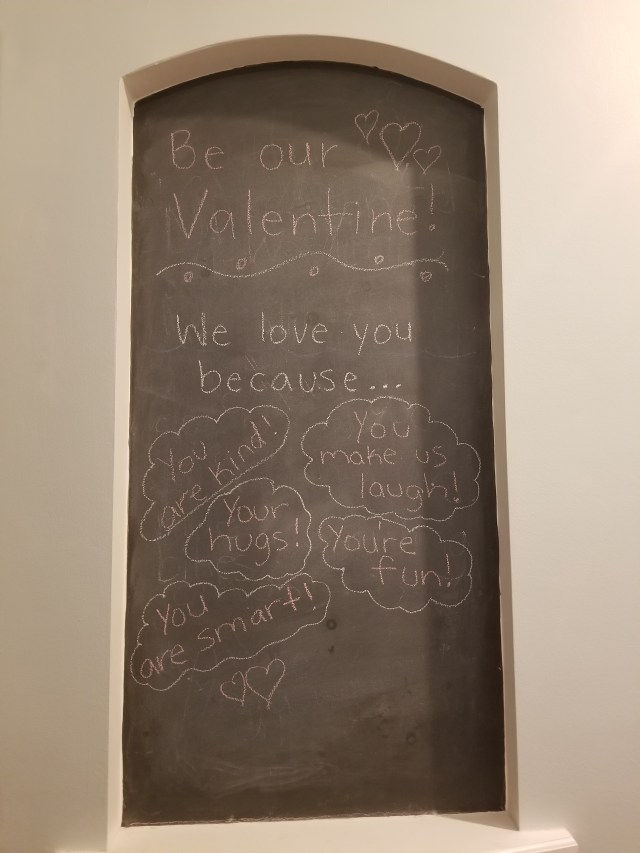 Be our
Valentine!
We love you
because...
You
are kind!
You
make us
laugh!
Your
hugs!
You're
fun!
You
are smart!